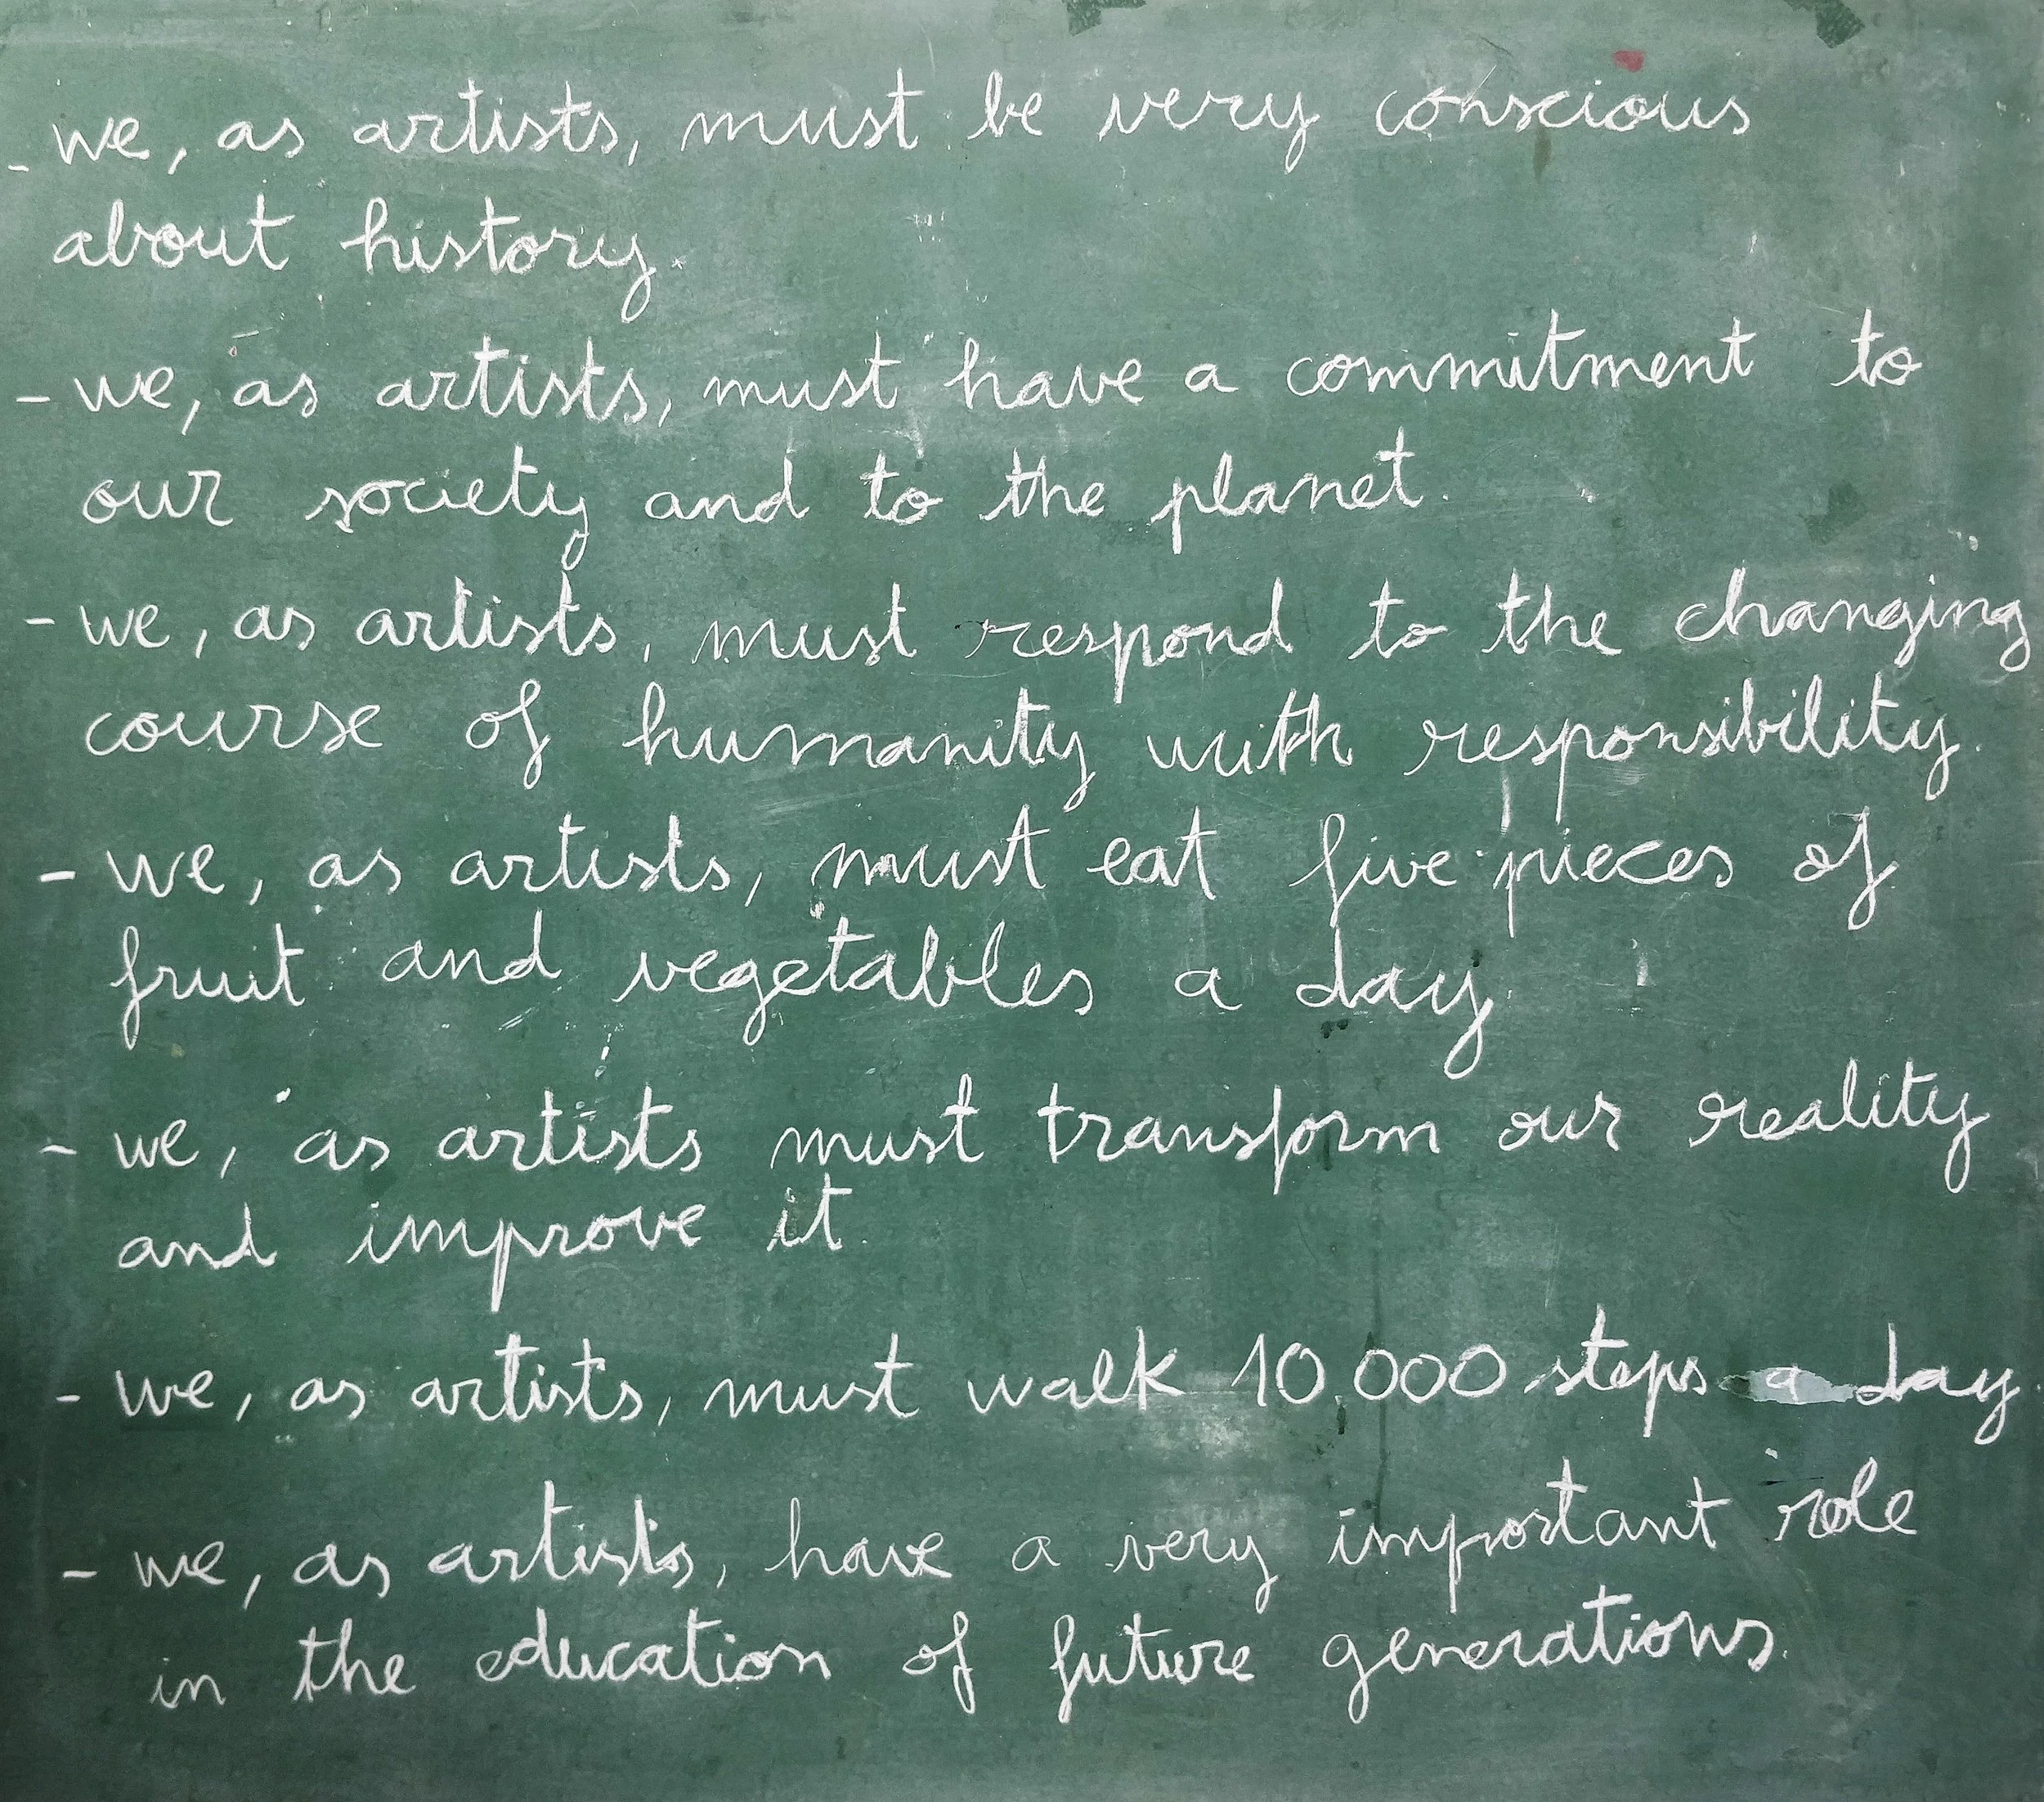 - we, as artists, must be very conscious
about history.
- we, as artists, must have a commitment to
our society and to the planet.
- we, as artists, must respond to the changing
course of humanity with responsibility.
- we, as artists, must eat five pieces of
fruit and vegetables a day
- we, as artists must transform our reality
and improve it.
- we, as artists, must walk 10.000 steps a day.
- we, as artists, have a very important role
in the education of future generations.